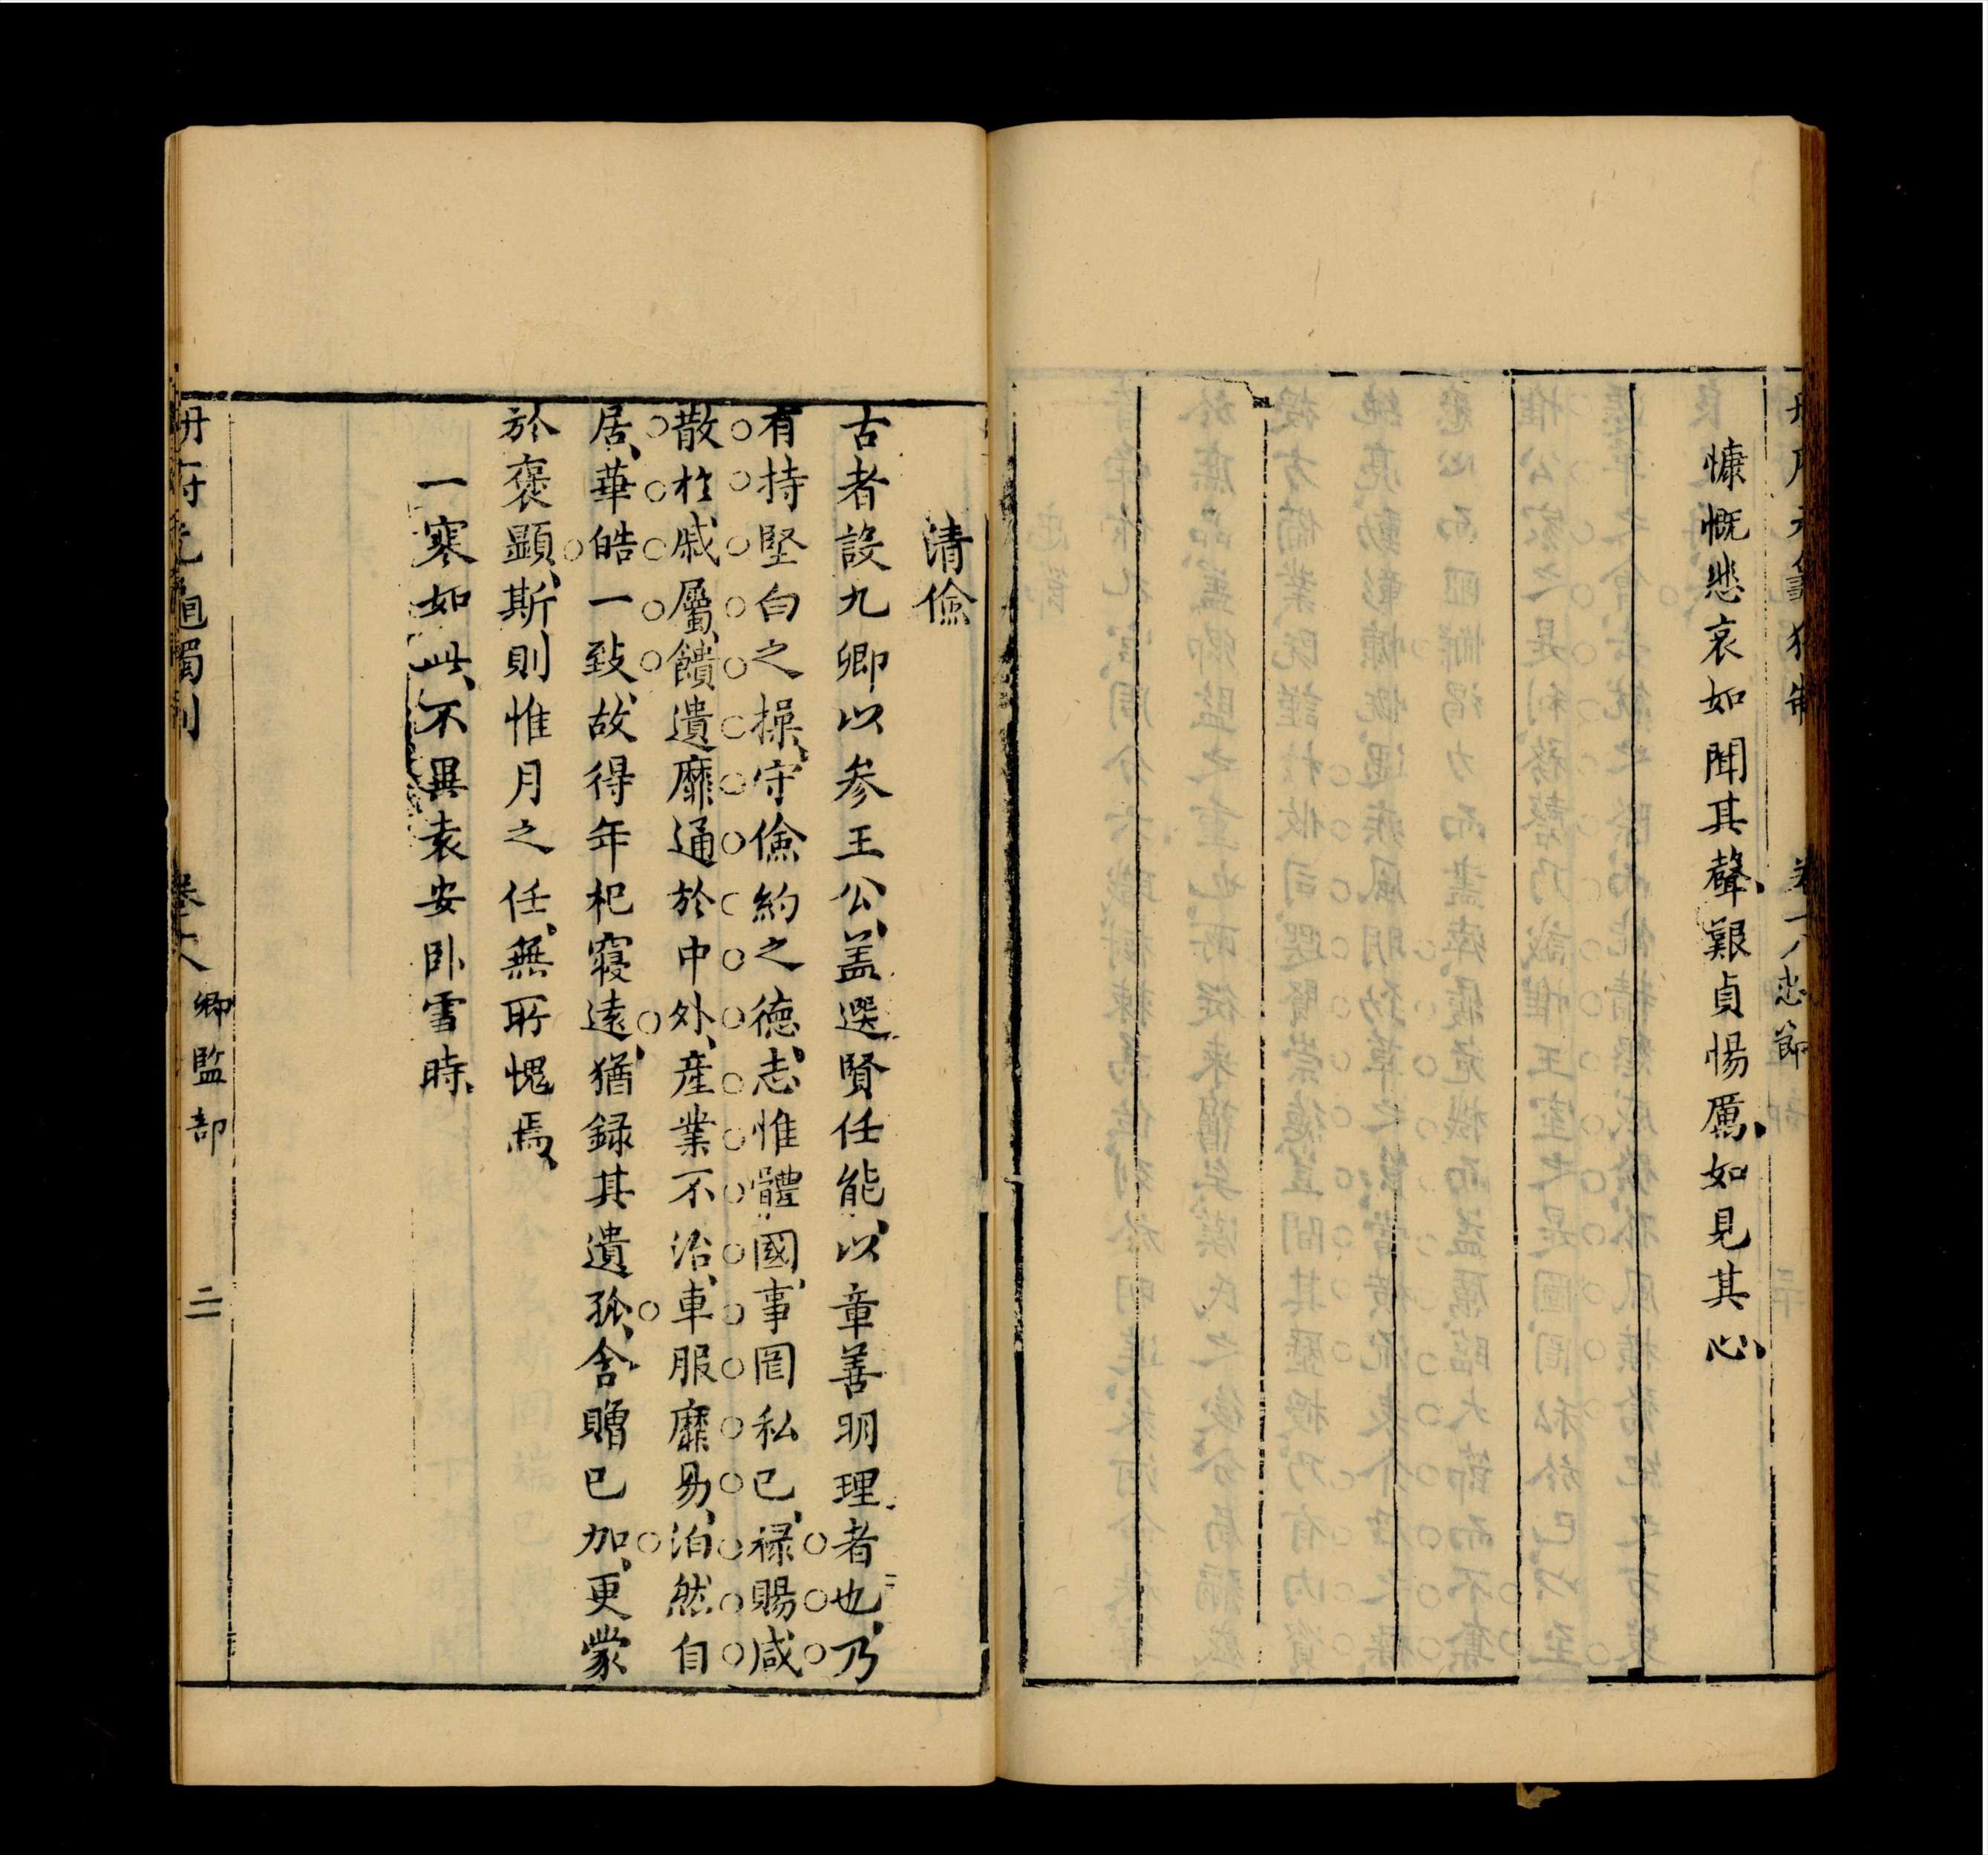 慷慨悲哀如聞其聲艱貞惕厲如見其心
清儉
古者設九卿以参王公盖選賢任能以章善明理者也乃
有持堅白之操守儉約之德志惟體國事罔私已禄賜咸
散於戚屬饋遺靡通於中外産業不治車服靡易泊然自
居華皓一致故得年祀寖遠猶録其遺孤含贈已加更蒙
於褒顯斯則惟月之任無所愧焉
一寒如此不異袁安卧雪時
冊府元龜獨制
卷十八
卿監部
二